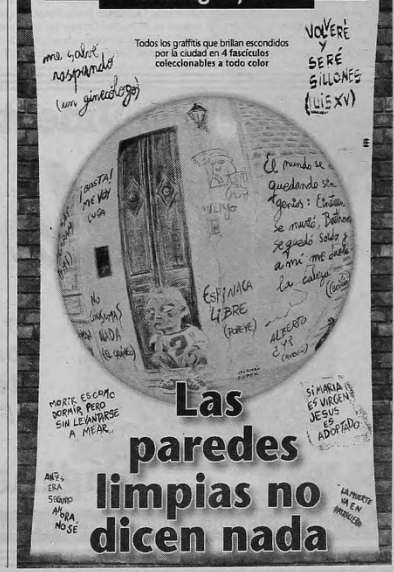 Todos los graffitis que brillan escondidos
por la ciudad en 4 fascículos
coleccionables a todo color
me salvé
raspando
(un ginecólogo)
VOLVERÉ
Y
SERÉ
SILLONES
(LUIS XV)
¡BASTA!
ME VOY
El mundo se
quedando sin
genios: Einstein
se murió, Beethoven
se quedó sordo y
a mí me duele
la cabeza
NO
NADA
ESPINACA
LIBRE
(POPEYE)
ALBERTO
MORIR ES COMO
DORMIR, PERO
SIN LEVANTARSE
A MEAR
SI MARIA
ES VIRGEN
JESUS
ES
ADOPTADO
Las
paredes
limpias no
dicen nada
ANTES
ERA
SEGURO
AHORA
NO SÉ
LA MUERTE
VA EN